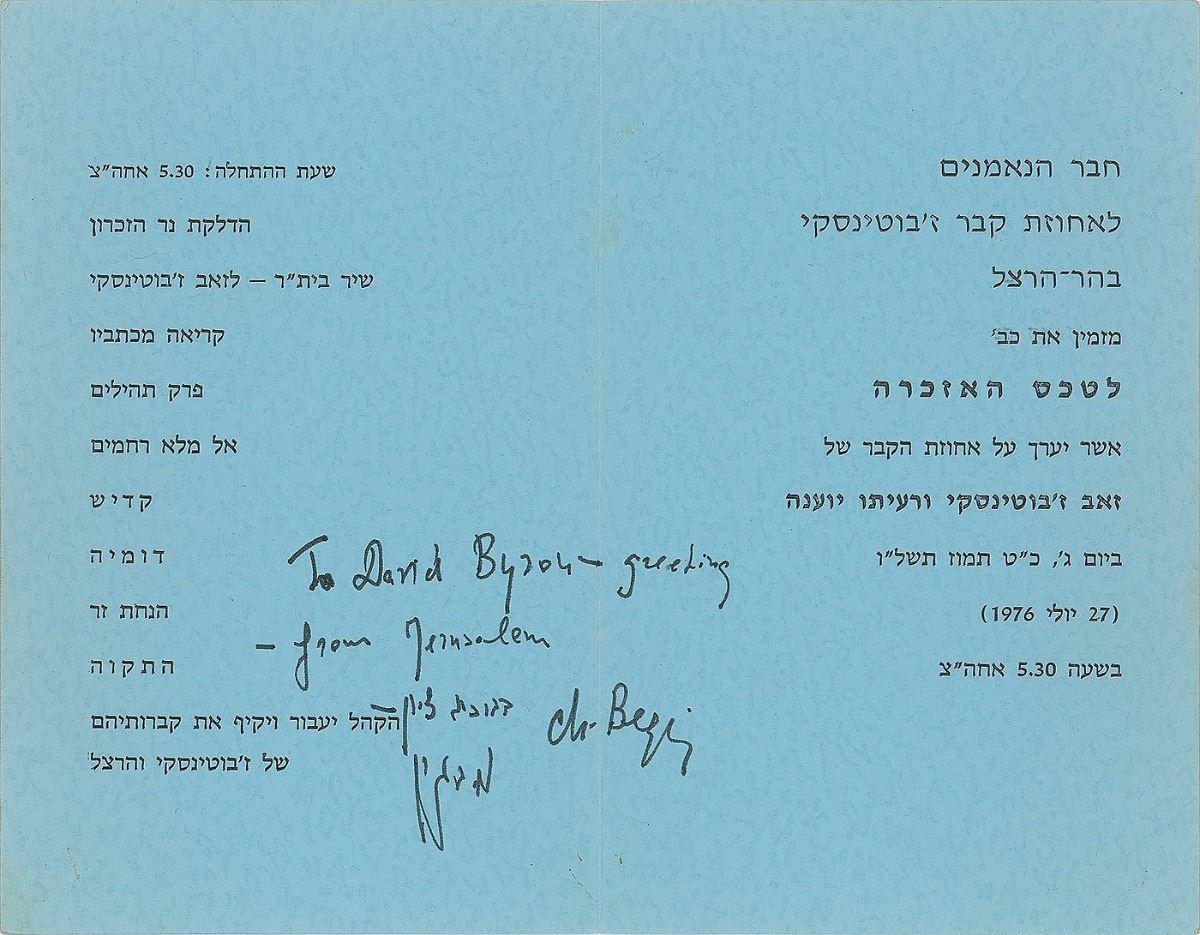 חבר הנאמנים
לאחוזת קבר ז'בוטינסקי
בהר־הרצל
מזמין את כב'
לטכס האזכרה
אשר יערך על אחוזת הקבר של
זאב ז'בוטינסקי ורעיתו יוענה
ביום ג', כ"ט תמוז תשל"ו
(27 יולי 1976)
בשעה 5.30 אחה"צ
שעת ההתחלה: 5.30 אחה"צ
הדלקת נר הזכרון
שיר בית"ר – לזאב ז'בוטינסקי
קריאה מכתביו
פרק תהילים
אל מלא רחמים
קדיש
דומיה
הנחת זר
התקוה
הקהל יעבור ויקיף את קברותיהם
של ז'בוטינסקי והרצל
To David Byron – greeting
– from Jerusalem
בברכת ציון –
M. Begin
מ. בגין